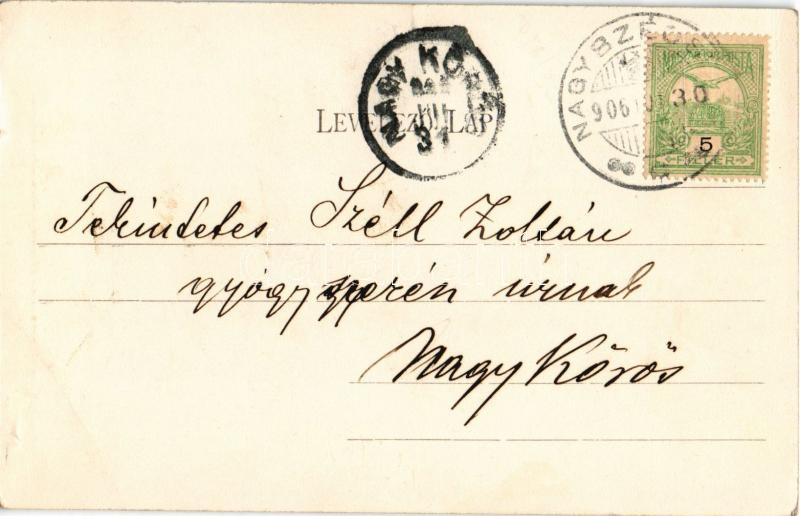 LEVELEZŐ LAP
NAGY KŐRÖS
31
NAGYSZ
906
30
MAGYAR POSTA
5
FILLÉR
Tekintetes Széll Zoltán
gyógyszerén úrnak
Nagy Kőrös